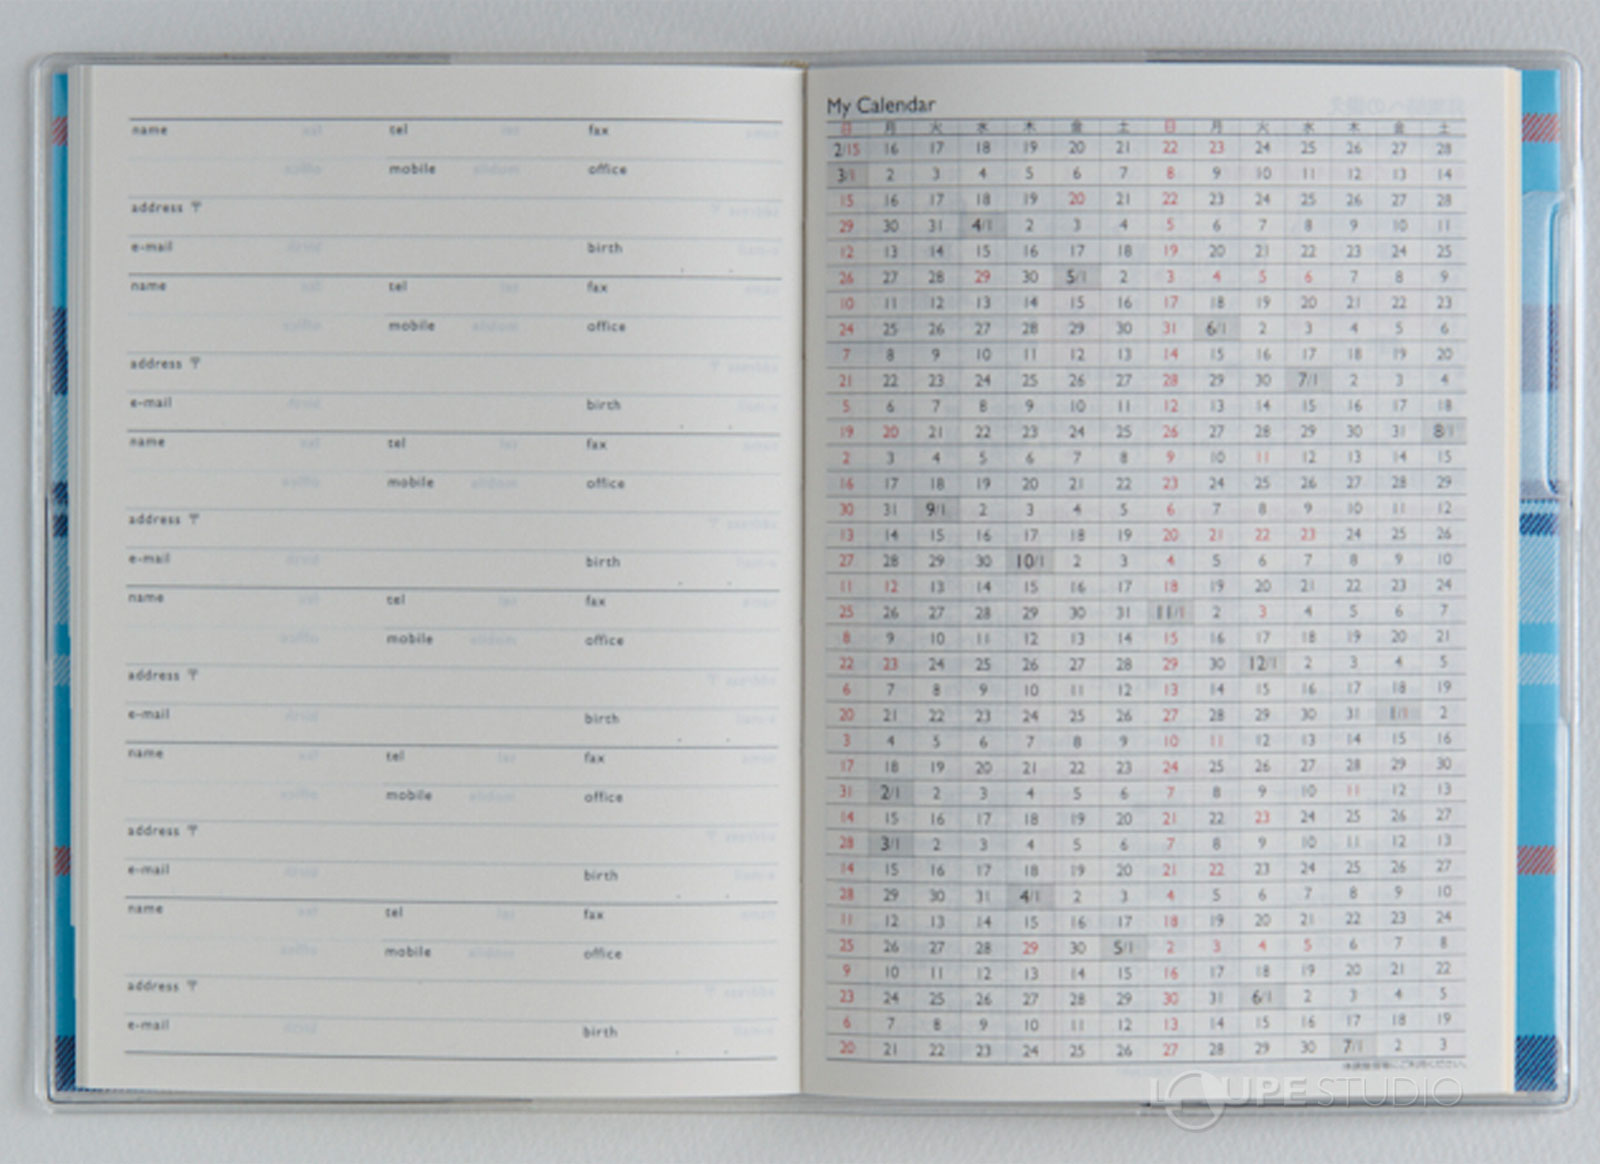 name tel fax
mobile office
address 〒
e-mail birth
name tel fax
mobile office
address 〒
e-mail birth
name tel fax
mobile office
address 〒
e-mail birth
name tel fax
mobile office
address 〒
e-mail birth
name tel fax
mobile office
address 〒
e-mail birth
name tel fax
mobile office
address 〒
e-mail birth
My Calendar
日 月 火 水 木 金 土 日 月 火 水 木 金 土
2/15 16 17 18 19 20 21 22 23 24 25 26 27 28
3/1 2 3 4 5 6 7 8 9 10 11 12 13 14
15 16 17 18 19 20 21 22 23 24 25 26 27 28
29 30 31 4/1 2 3 4 5 6 7 8 9 10 11
12 13 14 15 16 17 18 19 20 21 22 23 24 25
26 27 28 29 30 5/1 2 3 4 5 6 7 8 9
10 11 12 13 14 15 16 17 18 19 20 21 22 23
24 25 26 27 28 29 30 31 6/1 2 3 4 5 6
7 8 9 10 11 12 13 14 15 16 17 18 19 20
21 22 23 24 25 26 27 28 29 30 7/1 2 3 4
5 6 7 8 9 10 11 12 13 14 15 16 17 18
19 20 21 22 23 24 25 26 27 28 29 30 31 8/1
2 3 4 5 6 7 8 9 10 11 12 13 14 15
16 17 18 19 20 21 22 23 24 25 26 27 28 29
30 31 9/1 2 3 4 5 6 7 8 9 10 11 12
13 14 15 16 17 18 19 20 21 22 23 24 25 26
27 28 29 30 10/1 2 3 4 5 6 7 8 9 10
11 12 13 14 15 16 17 18 19 20 21 22 23 24
25 26 27 28 29 30 31 11/1 2 3 4 5 6 7
8 9 10 11 12 13 14 15 16 17 18 19 20 21
22 23 24 25 26 27 28 29 30 12/1 2 3 4 5
6 7 8 9 10 11 12 13 14 15 16 17 18 19
20 21 22 23 24 25 26 27 28 29 30 31 1/1 2
3 4 5 6 7 8 9 10 11 12 13 14 15 16
17 18 19 20 21 22 23 24 25 26 27 28 29 30
31 2/1 2 3 4 5 6 7 8 9 10 11 12 13
14 15 16 17 18 19 20 21 22 23 24 25 26 27
28 3/1 2 3 4 5 6 7 8 9 10 11 12 13
14 15 16 17 18 19 20 21 22 23 24 25 26 27
28 29 30 31 4/1 2 3 4 5 6 7 8 9 10
11 12 13 14 15 16 17 18 19 20 21 22 23 24
25 26 27 28 29 30 5/1 2 3 4 5 6 7 8
9 10 11 12 13 14 15 16 17 18 19 20 21 22
23 24 25 26 27 28 29 30 31 6/1 2 3 4 5
6 7 8 9 10 11 12 13 14 15 16 17 18 19
20 21 22 23 24 25 26 27 28 29 30 7/1 2 3
LOUPE STUDIO